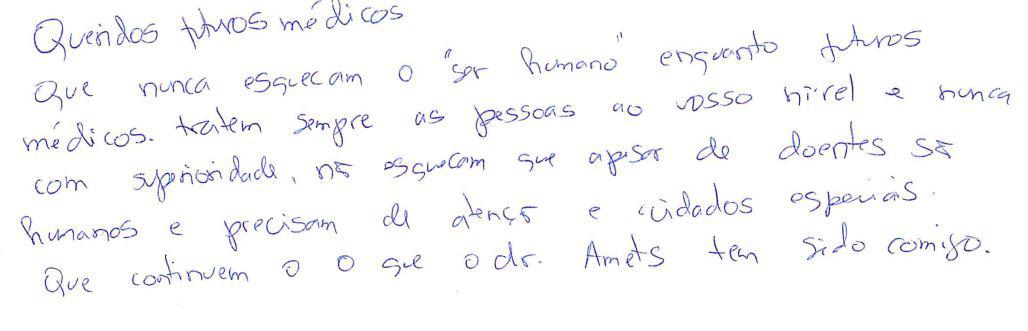 Queridos futuros médicos
Que nunca esquecam o "ser humano" enquanto futuros
médicos. tratem sempre as pessoas ao vosso nível e nunca
com superioridade, nõ esquecam que apesar de doentes sõ
humanos e precisam de atençõ e cuidados especiais.
Que continuem o o que o dr. Amets tem sido comigo.